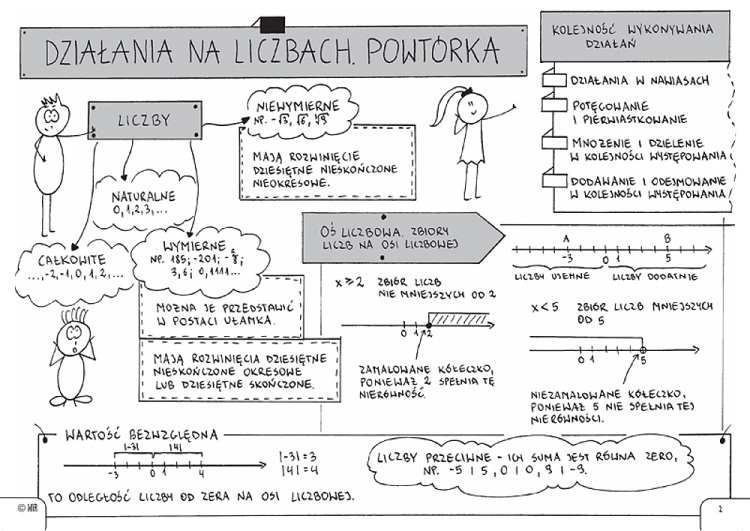 DZIAŁANIA NA LICZBACH. POWTÓRKA
KOLEJNOŚĆ WYKONYWANIA
DZIAŁAŃ
DZIAŁANIA W NAWIASACH
POTĘGOWANIE
I PIERWIASTKOWANIE
MNOŻENIE I DZIELENIE
W KOLEJNOŚCI WYSTĘPOWANIA
DODAWANIE I ODEJMOWANIE
W KOLEJNOŚCI WYSTĘPOWANIA
LICZBY
NIEWYMIERNE
MAJĄ ROZWINIĘCIE
DZIESIĘTNE NIESKOŃCZONE
NIEOKRESOWE.
NATURALNE
0, 1, 2, 3, ...
CAŁKOWITE
..., -2, -1, 0, 1, 2, ...
WYMIERNE
NP. 185; -201;
3,6; 0,1111...
MOŻNA JE PRZEDSTAWIĆ
W POSTACI UŁAMKA.
MAJĄ ROZWINIĘCIA DZIESIĘTNE
NIESKOŃCZONE OKRESOWE
LUB DZIESIĘTNE SKOŃCZONE.
OŚ LICZBOWA. ZBIORY
LICZB NA OSI LICZBOWEJ
A B
-3 0 1 5
LICZBY UJEMNE LICZBY DODATNIE
x ≥ 2 ZBIÓR LICZB
NIE MNIEJSZYCH OD 2
0 1 2
ZAMALOWANE KÓŁECZKO,
PONIEWAŻ 2 SPEŁNIA TĘ
NIERÓWNOŚĆ.
x < 5 ZBIÓR LICZB MNIEJSZYCH
OD 5
0 1 5
NIEZAMALOWANE KÓŁECZKO,
PONIEWAŻ 5 NIE SPEŁNIA TEJ
NIERÓWNOŚCI.
WARTOŚĆ BEZWZGLĘDNA
|-3| |4|
-3 0 1 4
|-3| = 3
|4| = 4
TO ODLEGŁOŚĆ LICZBY OD ZERA NA OSI LICZBOWEJ.
LICZBY PRZECIWNE - ICH SUMA JEST RÓWNA ZERO,
NP. -5 I 5, 0 I 0, 3 I -3.
2